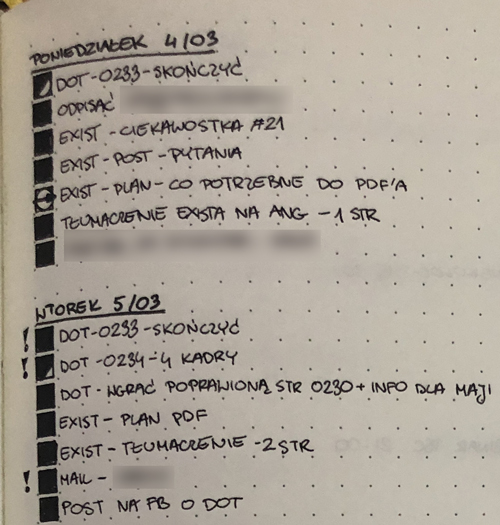 PONIEDZIAŁEK 4/03
DOT-0233-SKOŃCZYĆ
ODPISAĆ
EXIST-CIEKAWOSTKA #21
EXIST-POST-PYTANIA
EXIST-PLAN-CO POTRZEBNE DO PDF'A
TŁUMACZENIE EXISTA NA ANG -1 STR
WTOREK 5/03
! DOT-0233-SKOŃCZYĆ
! DOT-0234-4 KADRY
DOT-WGRAĆ POPRAWIONĄ STR 0230+INFO DLA MAJI
EXIST-PLAN PDF
EXIST-TŁUMACZENIE -2 STR
! MAIL-
POST NA FB O DOT